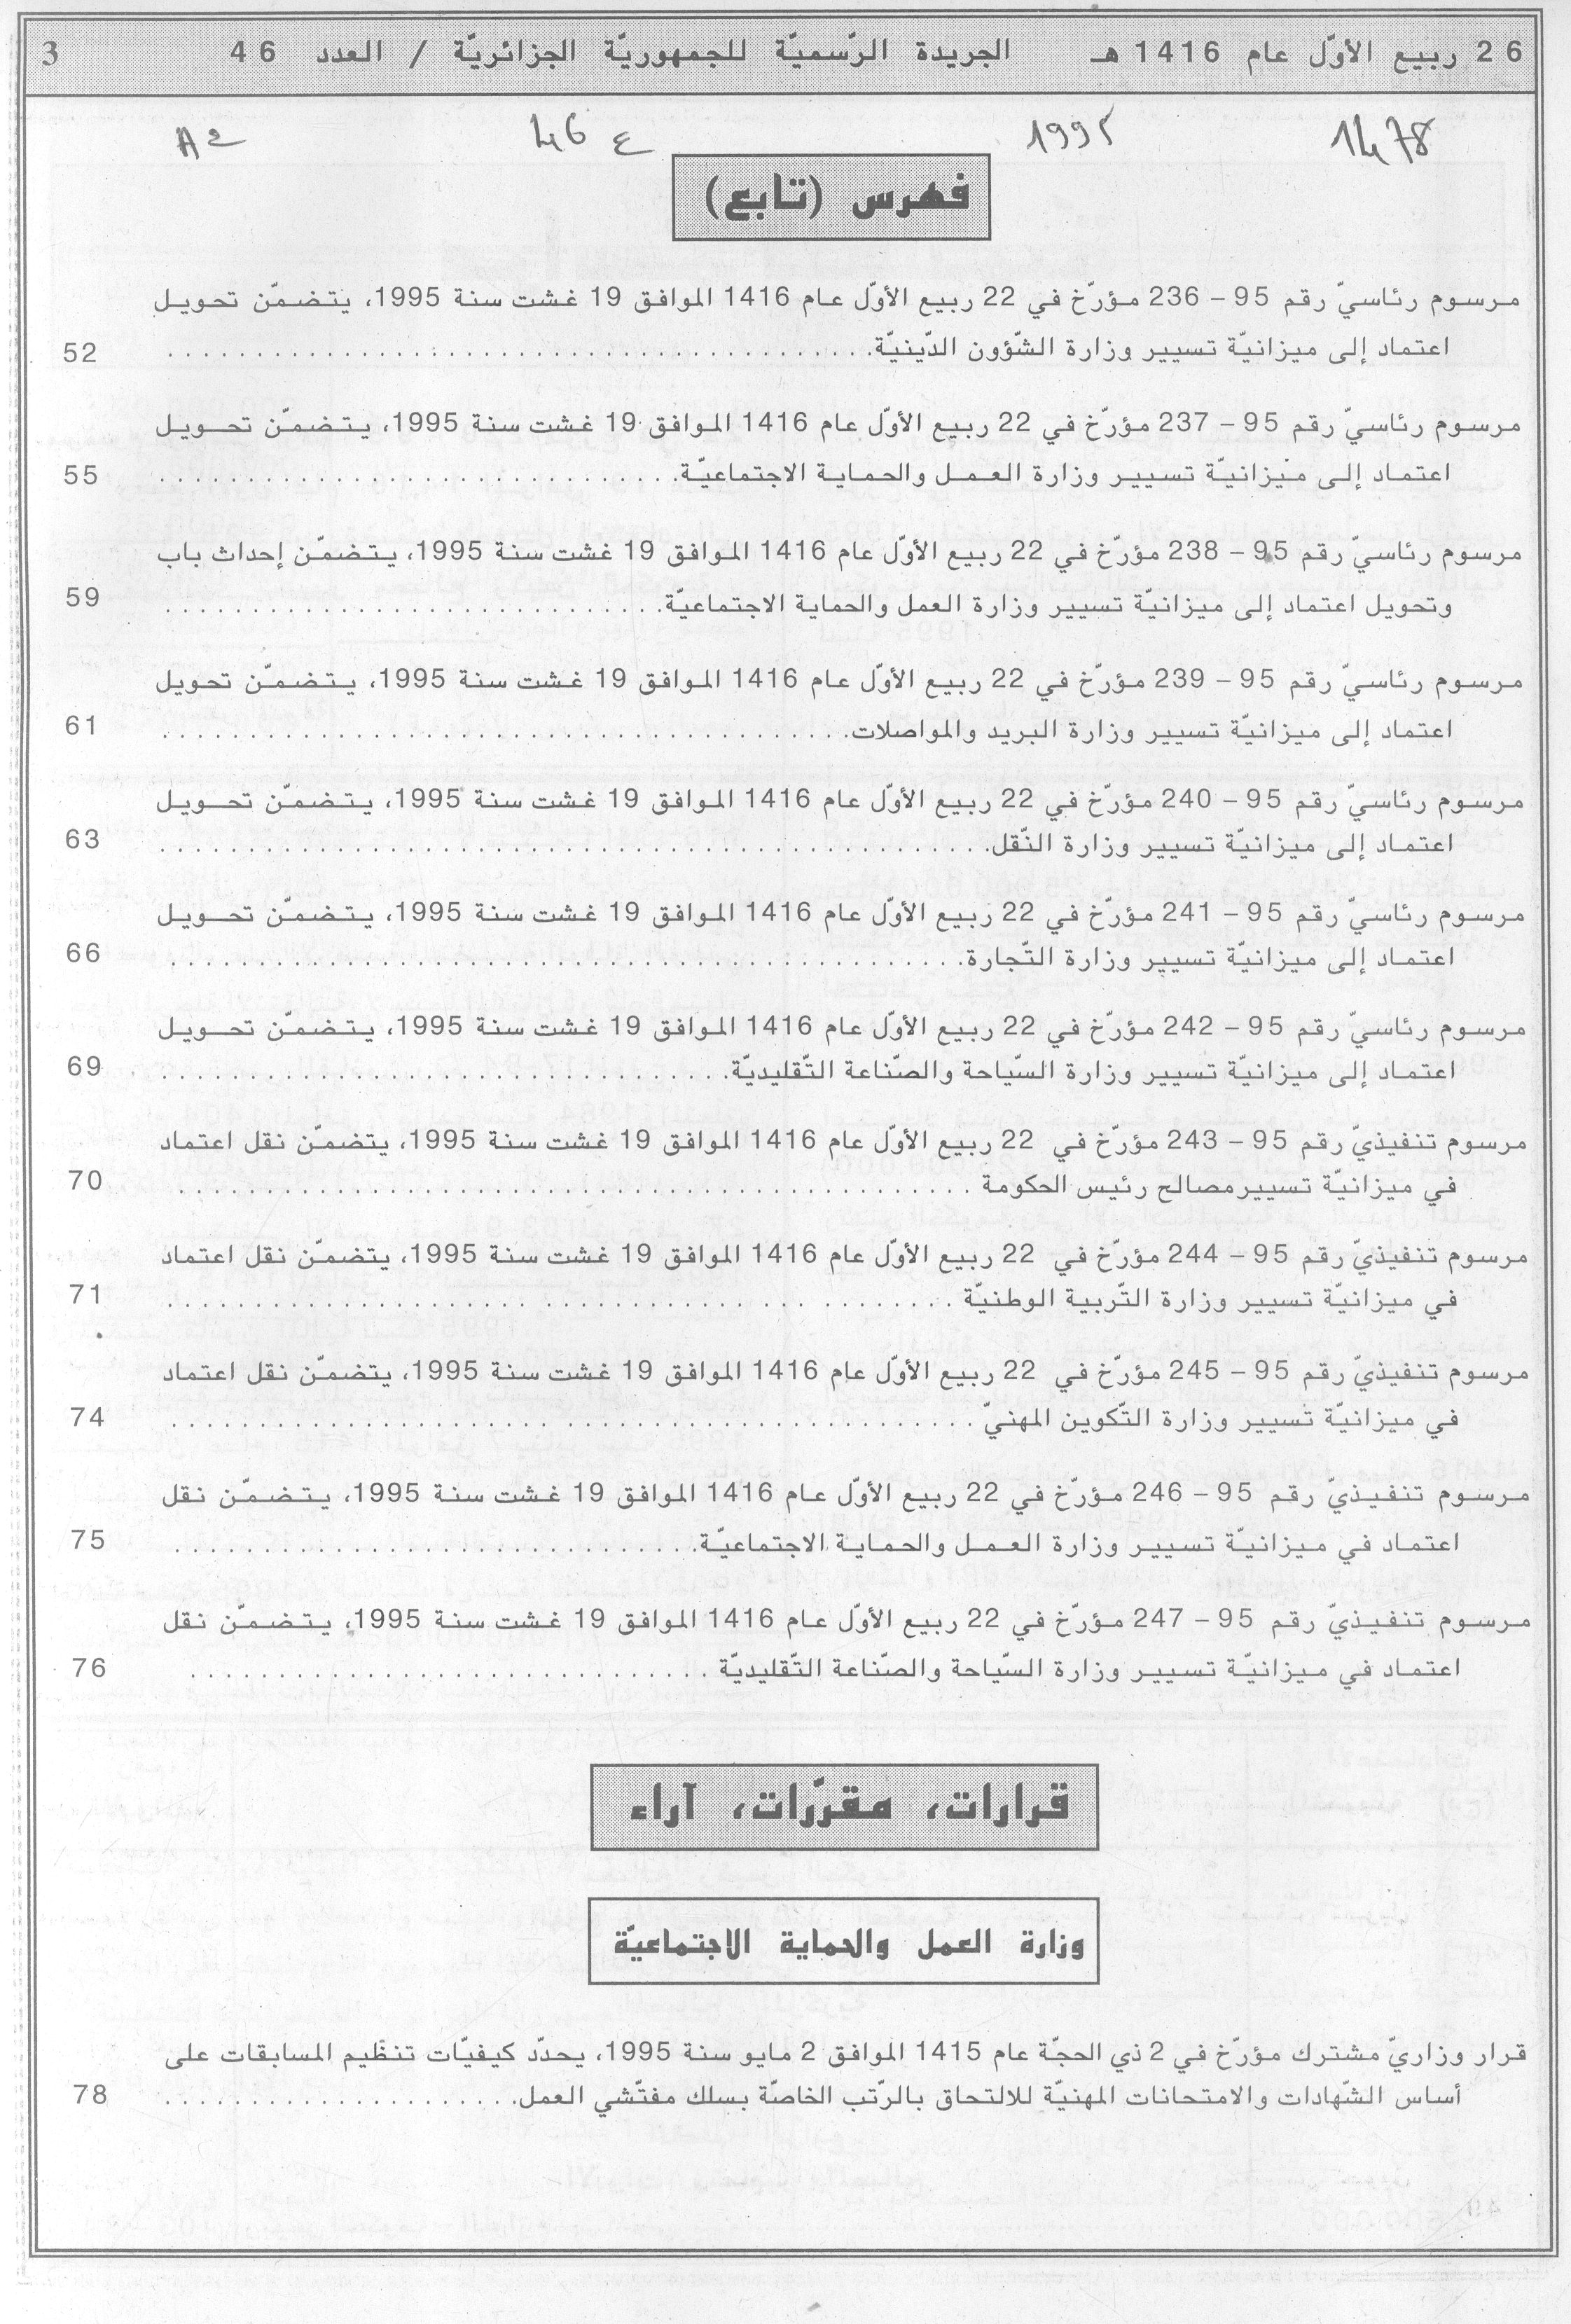 26 ربيع الأوّل عام 1416 هـ الجريدة الرّسميّة للجمهوريّة الجزائريّة / العدد 46 3
1478 1995 ع 46 A2
فهرس (تابع)
مرسوم رئاسيّ رقم 95 - 236 مؤرّخ في 22 ربيع الأوّل عام 1416 الموافق 19 غشت سنة 1995، يتضمّن تحويل
اعتماد إلى ميزانيّة تسيير وزارة الشّؤون الدّينيّة. 52
مرسوم رئاسيّ رقم 95 - 237 مؤرّخ في 22 ربيع الأوّل عام 1416 الموافق 19 غشت سنة 1995، يتضمّن تحويل
اعتماد إلى ميزانيّة تسيير وزارة العمل والحماية الاجتماعيّة. 55
مرسوم رئاسيّ رقم 95 - 238 مؤرّخ في 22 ربيع الأوّل عام 1416 الموافق 19 غشت سنة 1995، يتضمّن إحداث باب
وتحويل اعتماد إلى ميزانيّة تسيير وزارة العمل والحماية الاجتماعيّة. 59
مرسوم رئاسيّ رقم 95 - 239 مؤرّخ في 22 ربيع الأوّل عام 1416 الموافق 19 غشت سنة 1995، يتضمّن تحويل
اعتماد إلى ميزانيّة تسيير وزارة البريد والمواصلات. 61
مرسوم رئاسيّ رقم 95 - 240 مؤرّخ في 22 ربيع الأوّل عام 1416 الموافق 19 غشت سنة 1995، يتضمّن تحويل
اعتماد إلى ميزانيّة تسيير وزارة النّقل. 63
مرسوم رئاسيّ رقم 95 - 241 مؤرّخ في 22 ربيع الأوّل عام 1416 الموافق 19 غشت سنة 1995، يتضمّن تحويل
اعتماد إلى ميزانيّة تسيير وزارة التّجارة. 66
مرسوم رئاسيّ رقم 95 - 242 مؤرّخ في 22 ربيع الأوّل عام 1416 الموافق 19 غشت سنة 1995، يتضمّن تحويل
اعتماد إلى ميزانيّة تسيير وزارة السّياحة والصّناعة التّقليديّة. 69
مرسوم تنفيذيّ رقم 95 - 243 مؤرّخ في 22 ربيع الأوّل عام 1416 الموافق 19 غشت سنة 1995، يتضمّن نقل اعتماد
في ميزانيّة تسيير مصالح رئيس الحكومة 70
مرسوم تنفيذيّ رقم 95 - 244 مؤرّخ في 22 ربيع الأوّل عام 1416 الموافق 19 غشت سنة 1995، يتضمّن نقل اعتماد
في ميزانيّة تسيير وزارة التّربية الوطنيّة 71
مرسوم تنفيذيّ رقم 95 - 245 مؤرّخ في 22 ربيع الأوّل عام 1416 الموافق 19 غشت سنة 1995، يتضمّن نقل اعتماد
في ميزانيّة تسيير وزارة التّكوين المهنيّ 74
مرسوم تنفيذيّ رقم 95 - 246 مؤرّخ في 22 ربيع الأوّل عام 1416 الموافق 19 غشت سنة 1995، يتضمّن نقل
اعتماد في ميزانيّة تسيير وزارة العمل والحماية الاجتماعيّة. 75
مرسوم تنفيذيّ رقم 95 - 247 مؤرّخ في 22 ربيع الأوّل عام 1416 الموافق 19 غشت سنة 1995، يتضمّن نقل
اعتماد في ميزانيّة تسيير وزارة السّياحة والصّناعة التّقليديّة 76
قرارات، مقرّرات، آراء
وزارة العمل والحماية الاجتماعيّة
قرار وزاريّ مشترك مؤرّخ في 2 ذي الحجّة عام 1415 الموافق 2 مايو سنة 1995، يحدّد كيفيّات تنظيم المسابقات على
أساس الشّهادات والامتحانات المهنيّة للالتحاق بالرّتب الخاصّة بسلك مفتّشي العمل. 78